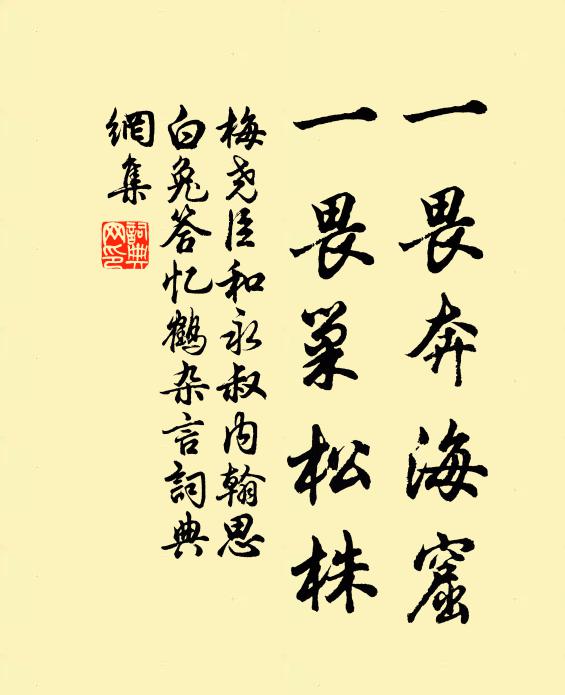 一畏奔海窟
一畏巢松株
梅尧臣和永叔内翰思
白兔答忆鹤杂言詞典
網集
詞典
网印